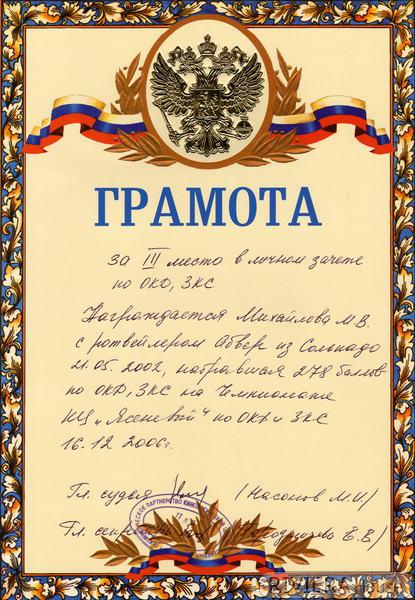 ГРАМОТА
за III место в личном зачете
по ОКД, ЗКС
Награждается Михайлова М.В.
с ротвейлером Абвер из Сольнадо
21.05.2002, набравшая 278 баллов
по ОКД, ЗКС на Чемпионате
КЦ „Ясеневый" по ОКД и ЗКС
16.12.2006г.
Гл. судья (Насонов М.И)
Гл. Е.В)